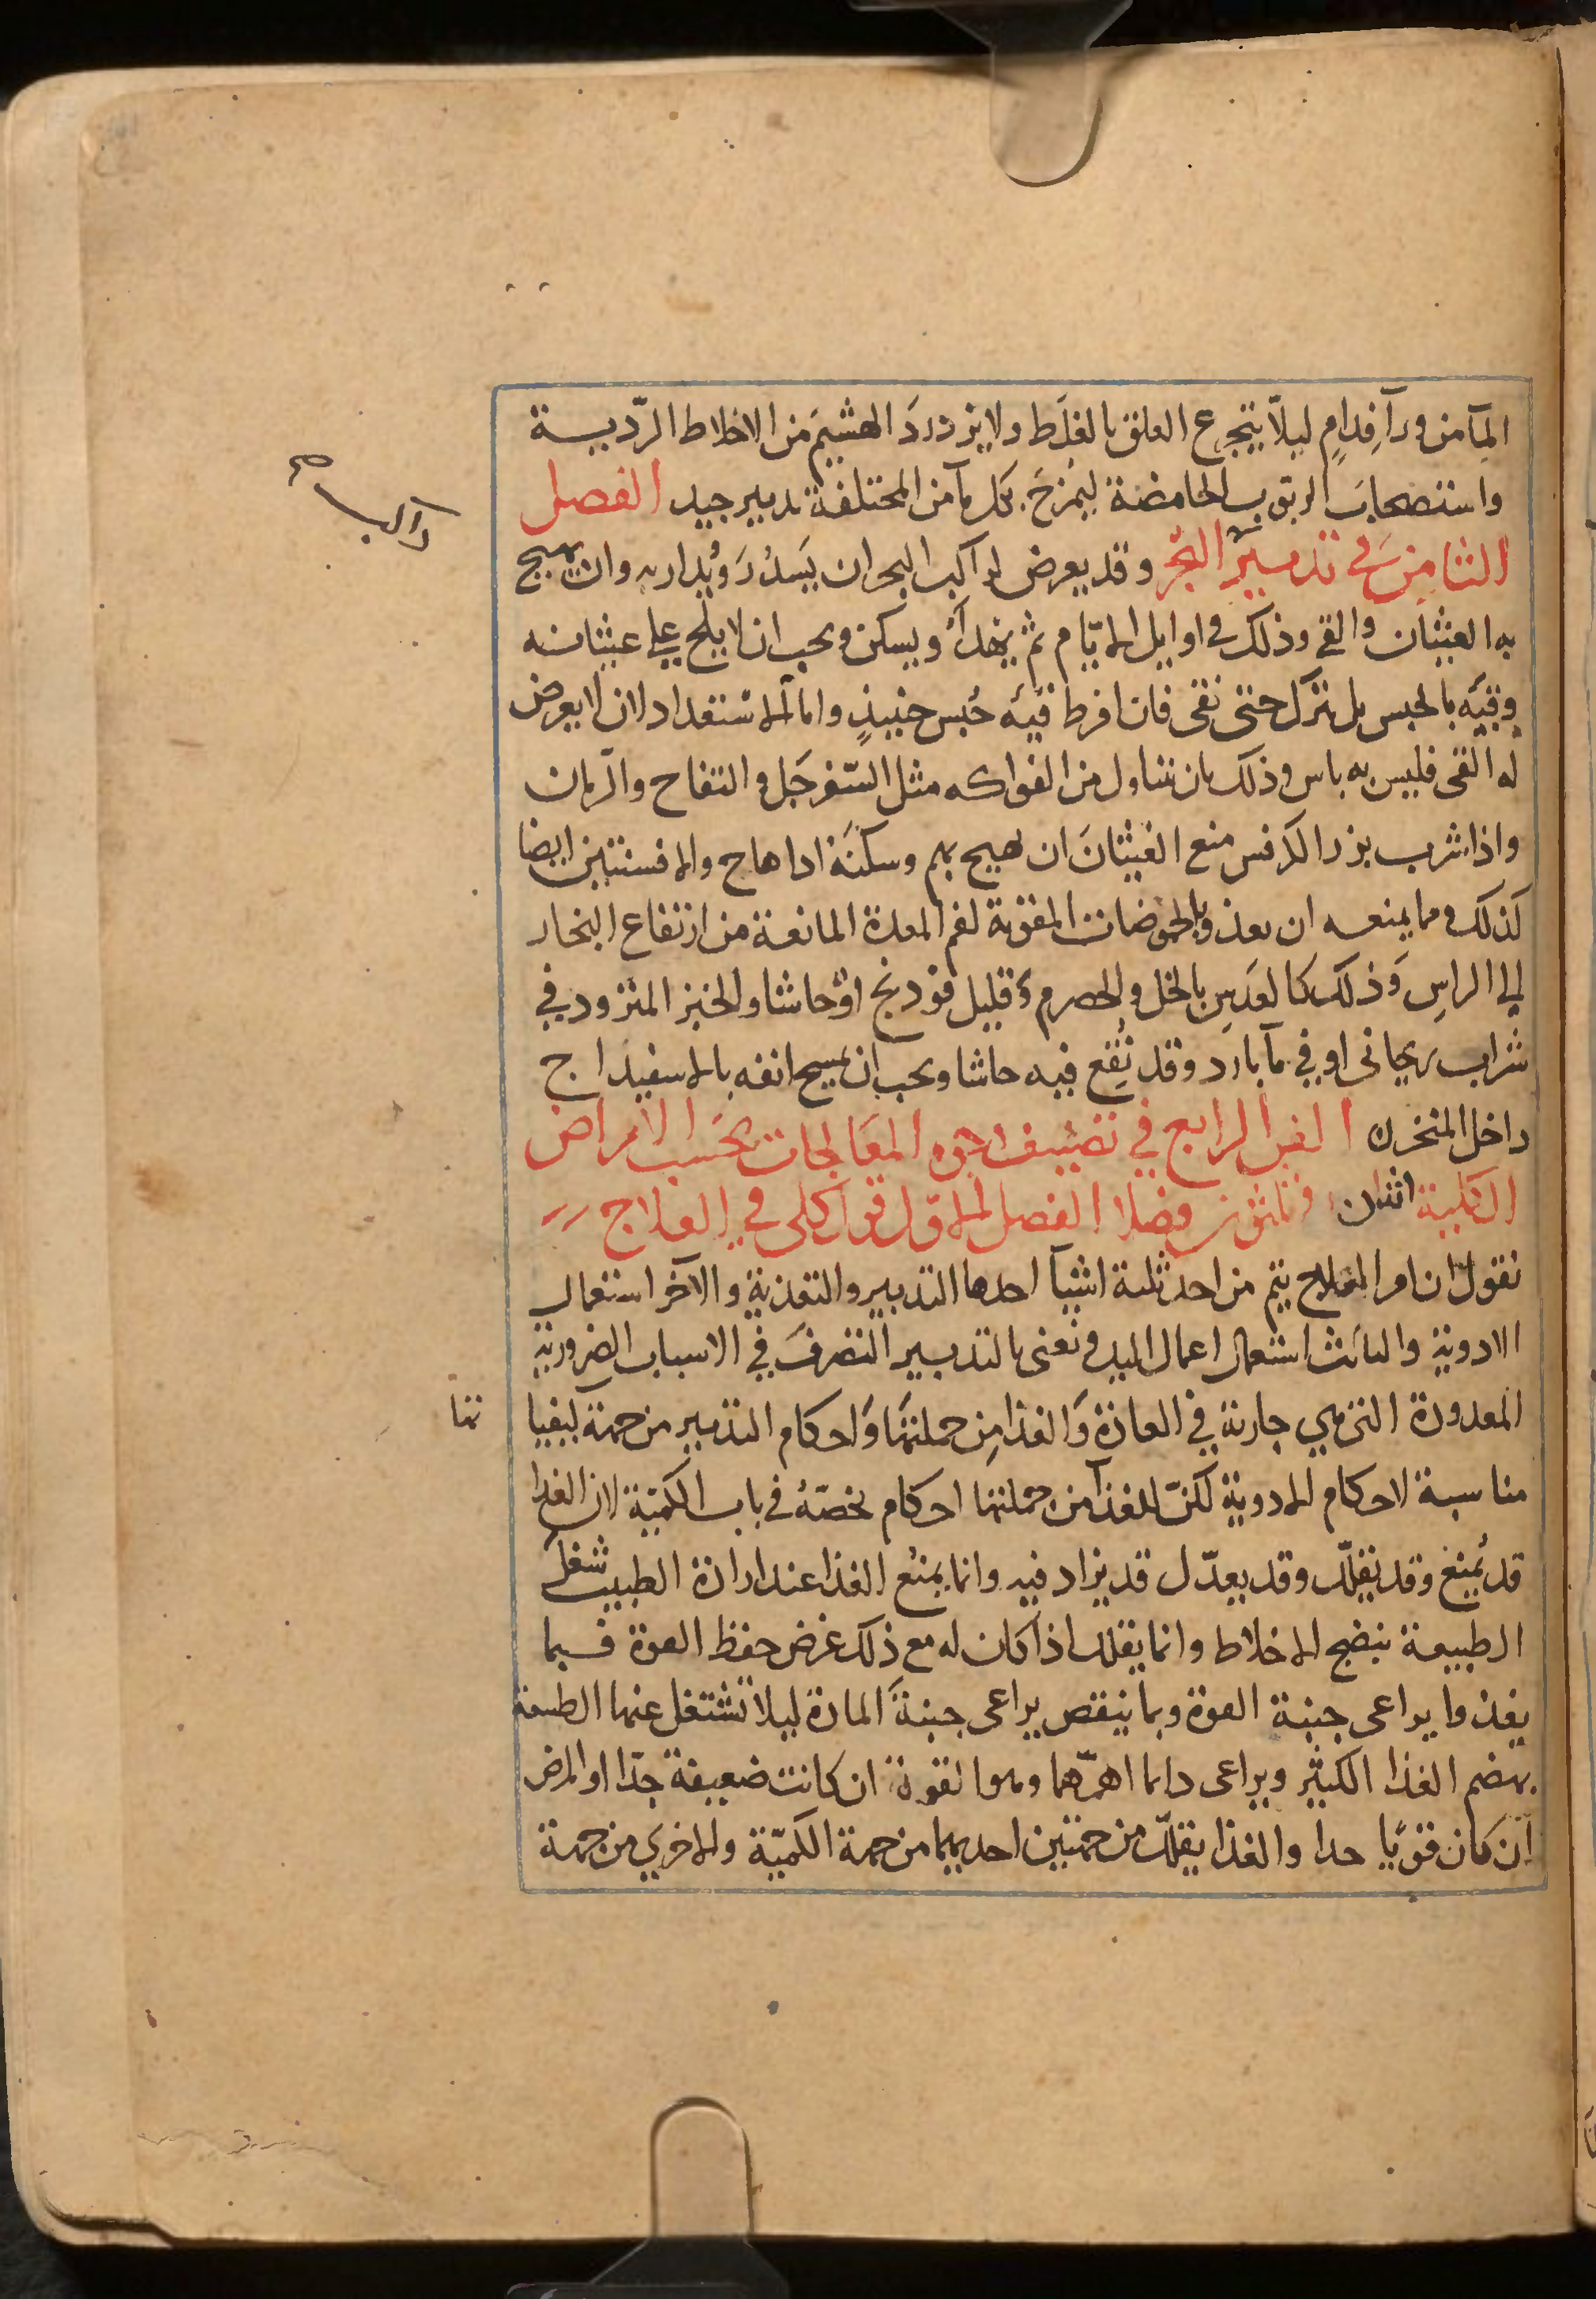 المآ من ورآ فدام ليلّا يتجرع العلق بالغلَط ولا يزدردَ الهشيمَ من الاخلاط الردّيية
واستصحاب الربوب الحامضة ليُمزَج بكل مآ من المختلفة تدبير جيد الفصل
الثامن في تدبير البحر وقد يعرض لراكب البحر ان يَسدُرَ ويُدار به وان يهيج
به الغثيان والقي وذلك في اوايل الايّام ثم يهدأ ويسكن ويجب ان لا يلح علي غثيانه
وقيّه بالحبس بل يترك حتى يقى فان افرط قيّه حُبس حينيذٍ واما الاستعداد لان لا يعرض
له القى فليس به باس وذلك بان يتناول من الفواكه مثل السّفرجَل والتفاح والرّمان
واذا شرب بزر الكرفس منع الغثيانَ ان يهيج بهم وسكنَه اذا هاج والافسنتين ايضا
كذلك ومما يمنعه ان يغذو بالحموضات المقوّية لفم المعدة المانعة من ارتفاع البخار
الي الراسِ وَذلك كالعدَسِ بالخل والحصرم وقليل فودنج او حاشا والخبز المثرود في
شراب ريحانى او في مآ بارد وقد نُقِع فيه حاشا ويجب ان يمسح انفه بالاسفيداج
داخل المنخرن الفن الرابع في تصنيف وجوه المعَالجات بحَسب الامراض
الكلية اثنان وثلثون فصلا الفصل الاوّل قول كلى في العلاج
نقول ان امر العلاج يتم من احد ثلثة اشيآ احدها التدبير والتغذية والآخر استعمال
الادوية والثالث استعمال اعمال اليد ونعنى بالتدبير التصرفَ في الاسباب الضرورية
المعدودة التى هي جارية في العادة وَالغذا مِن جملتهَا وَاحكام التدبير من جهة كيفيا
تها
مناسبة لاحكام الادوية لكنّ للغذآ من جملتها احكام تخصّهُ في باب الكميّة لان الغذا
قد يُمنع وقد يقلّل وقد يعدّل قد يزاد فيه وانما يمنَع الغذا عند ارادة الطبيب شغل
الطبيعة بنضج الاخلاط وانما يقلل اذا كان له مع ذلك غرض حفظ القوة فبما
يغذوا يراعى جنبة القوة وبما ينقص يراعى جنبةَ المادة ليلا تشتغل عنها الطبيعة
بهضم الغذا الكثير ويراعى دايما اهمّهما وهو القوة ان كانت ضعيفة جدّا او المرض
ان كان قوّيا جدا والغذا يقلّل من جهتين احديهما من جهة الكميّة والاخري من جهة